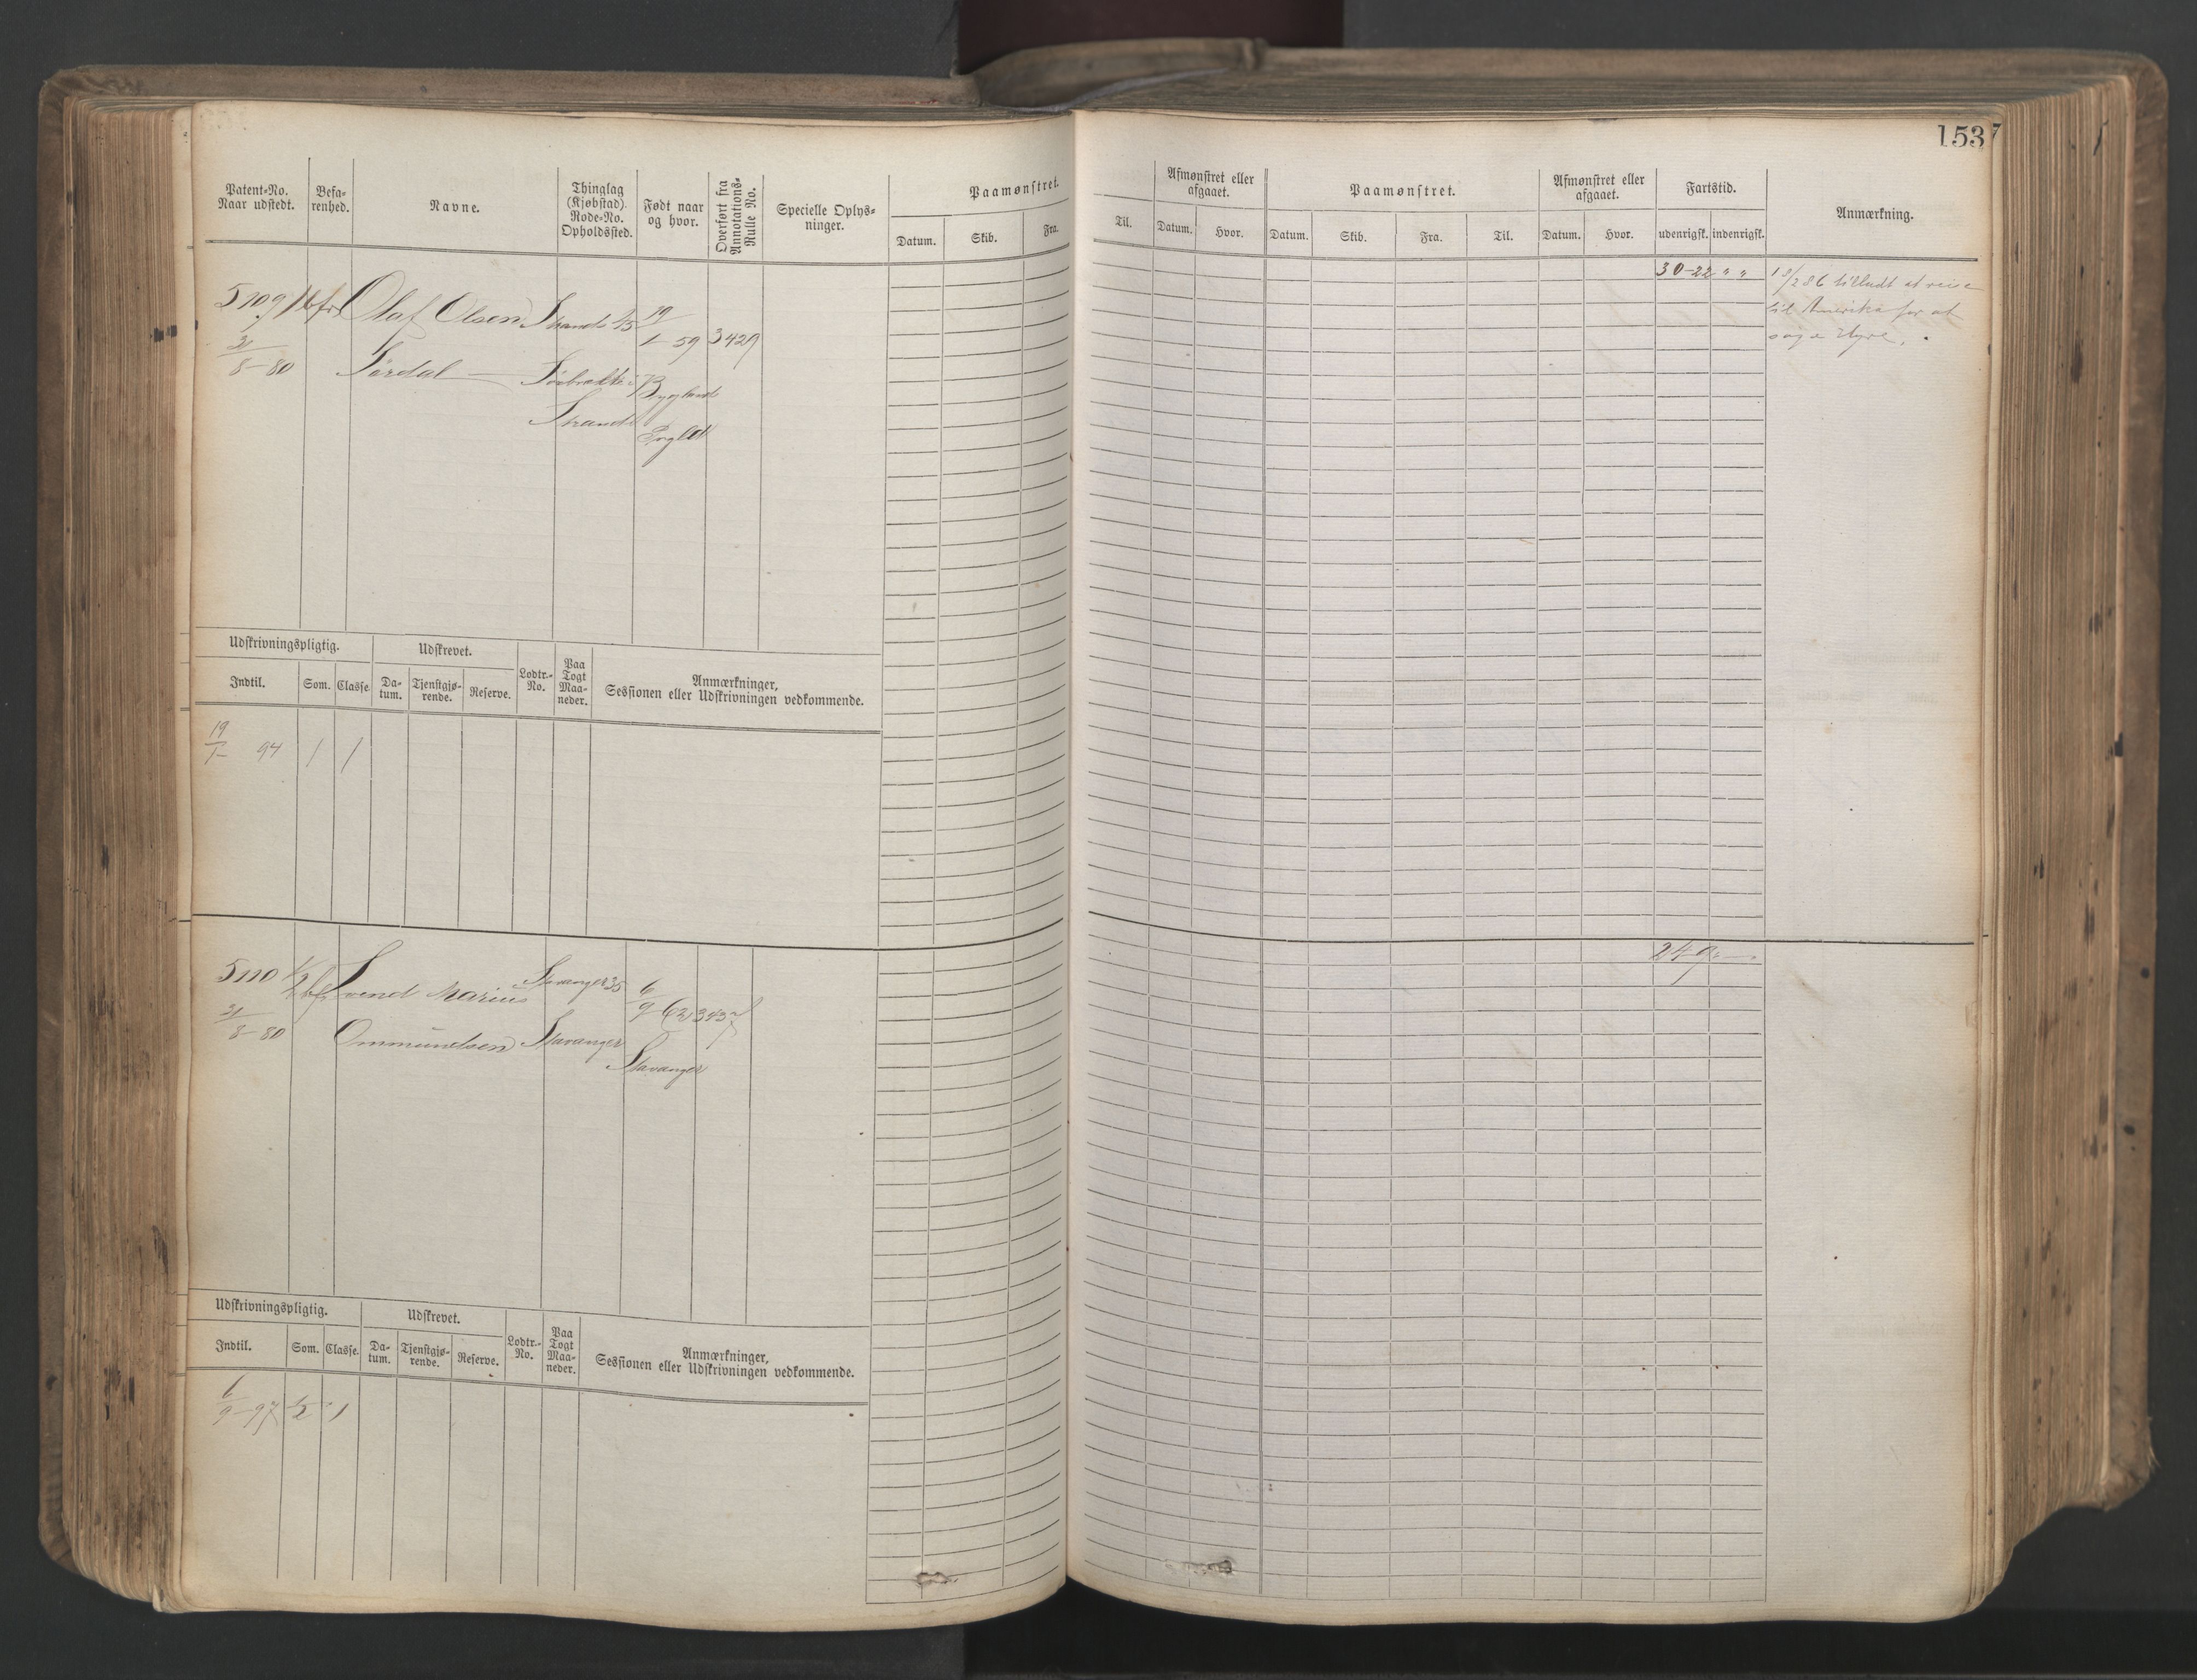 153
Patent-No. Naar udstedt.
Befarenhed.
Navne.
Thinglag (Kjøbstad). Rode-No. Opholdssted.
Født naar og hvor.
Overført fra Annotations-Rulle No.
Specielle Oplysninger.
Paamønstret.
Datum. Skib. Fra. Til.
Afmønstret eller afgaaet.
Datum. Hvor.
Paamønstret.
Datum. Skib. Fra. Til.
Afmønstret eller afgaaet.
Datum. Hvor.
Fartstid.
udenrigsk. indenrigsk.
Anmærkning.
5109 Olaf Olsen Strand 19
1-59 3429
31
8-80 Tørdal Strand
Bygland
30-22 " "
18/2 86 tilladt at reise
til Amerika for at
søge Hyre.
Udskrivningspligtig.
Indtil. Som. Classe.
Udskrevet.
Datum. Tjenstgjørende. Reserve.
Lodtr.-No.
Paa Togt Maaneder.
Anmærkninger,
Sessionen eller Udskrivningen vedkommende.
19
1- 94 1 1
5110 1/2 bf Svend Marius Stavanger 35 6
9 62 3437
31
8-80 Ommundsen Stavanger
Stavanger
24-9 " —
Udskrivningspligtig.
Indtil. Som. Classe.
Udskrevet.
Datum. Tjenstgjørende. Reserve.
Lodtr.-No.
Paa Togt Maaneder.
Anmærkninger,
Sessionen eller Udskrivningen vedkommende.
6
9-97 1/2 1